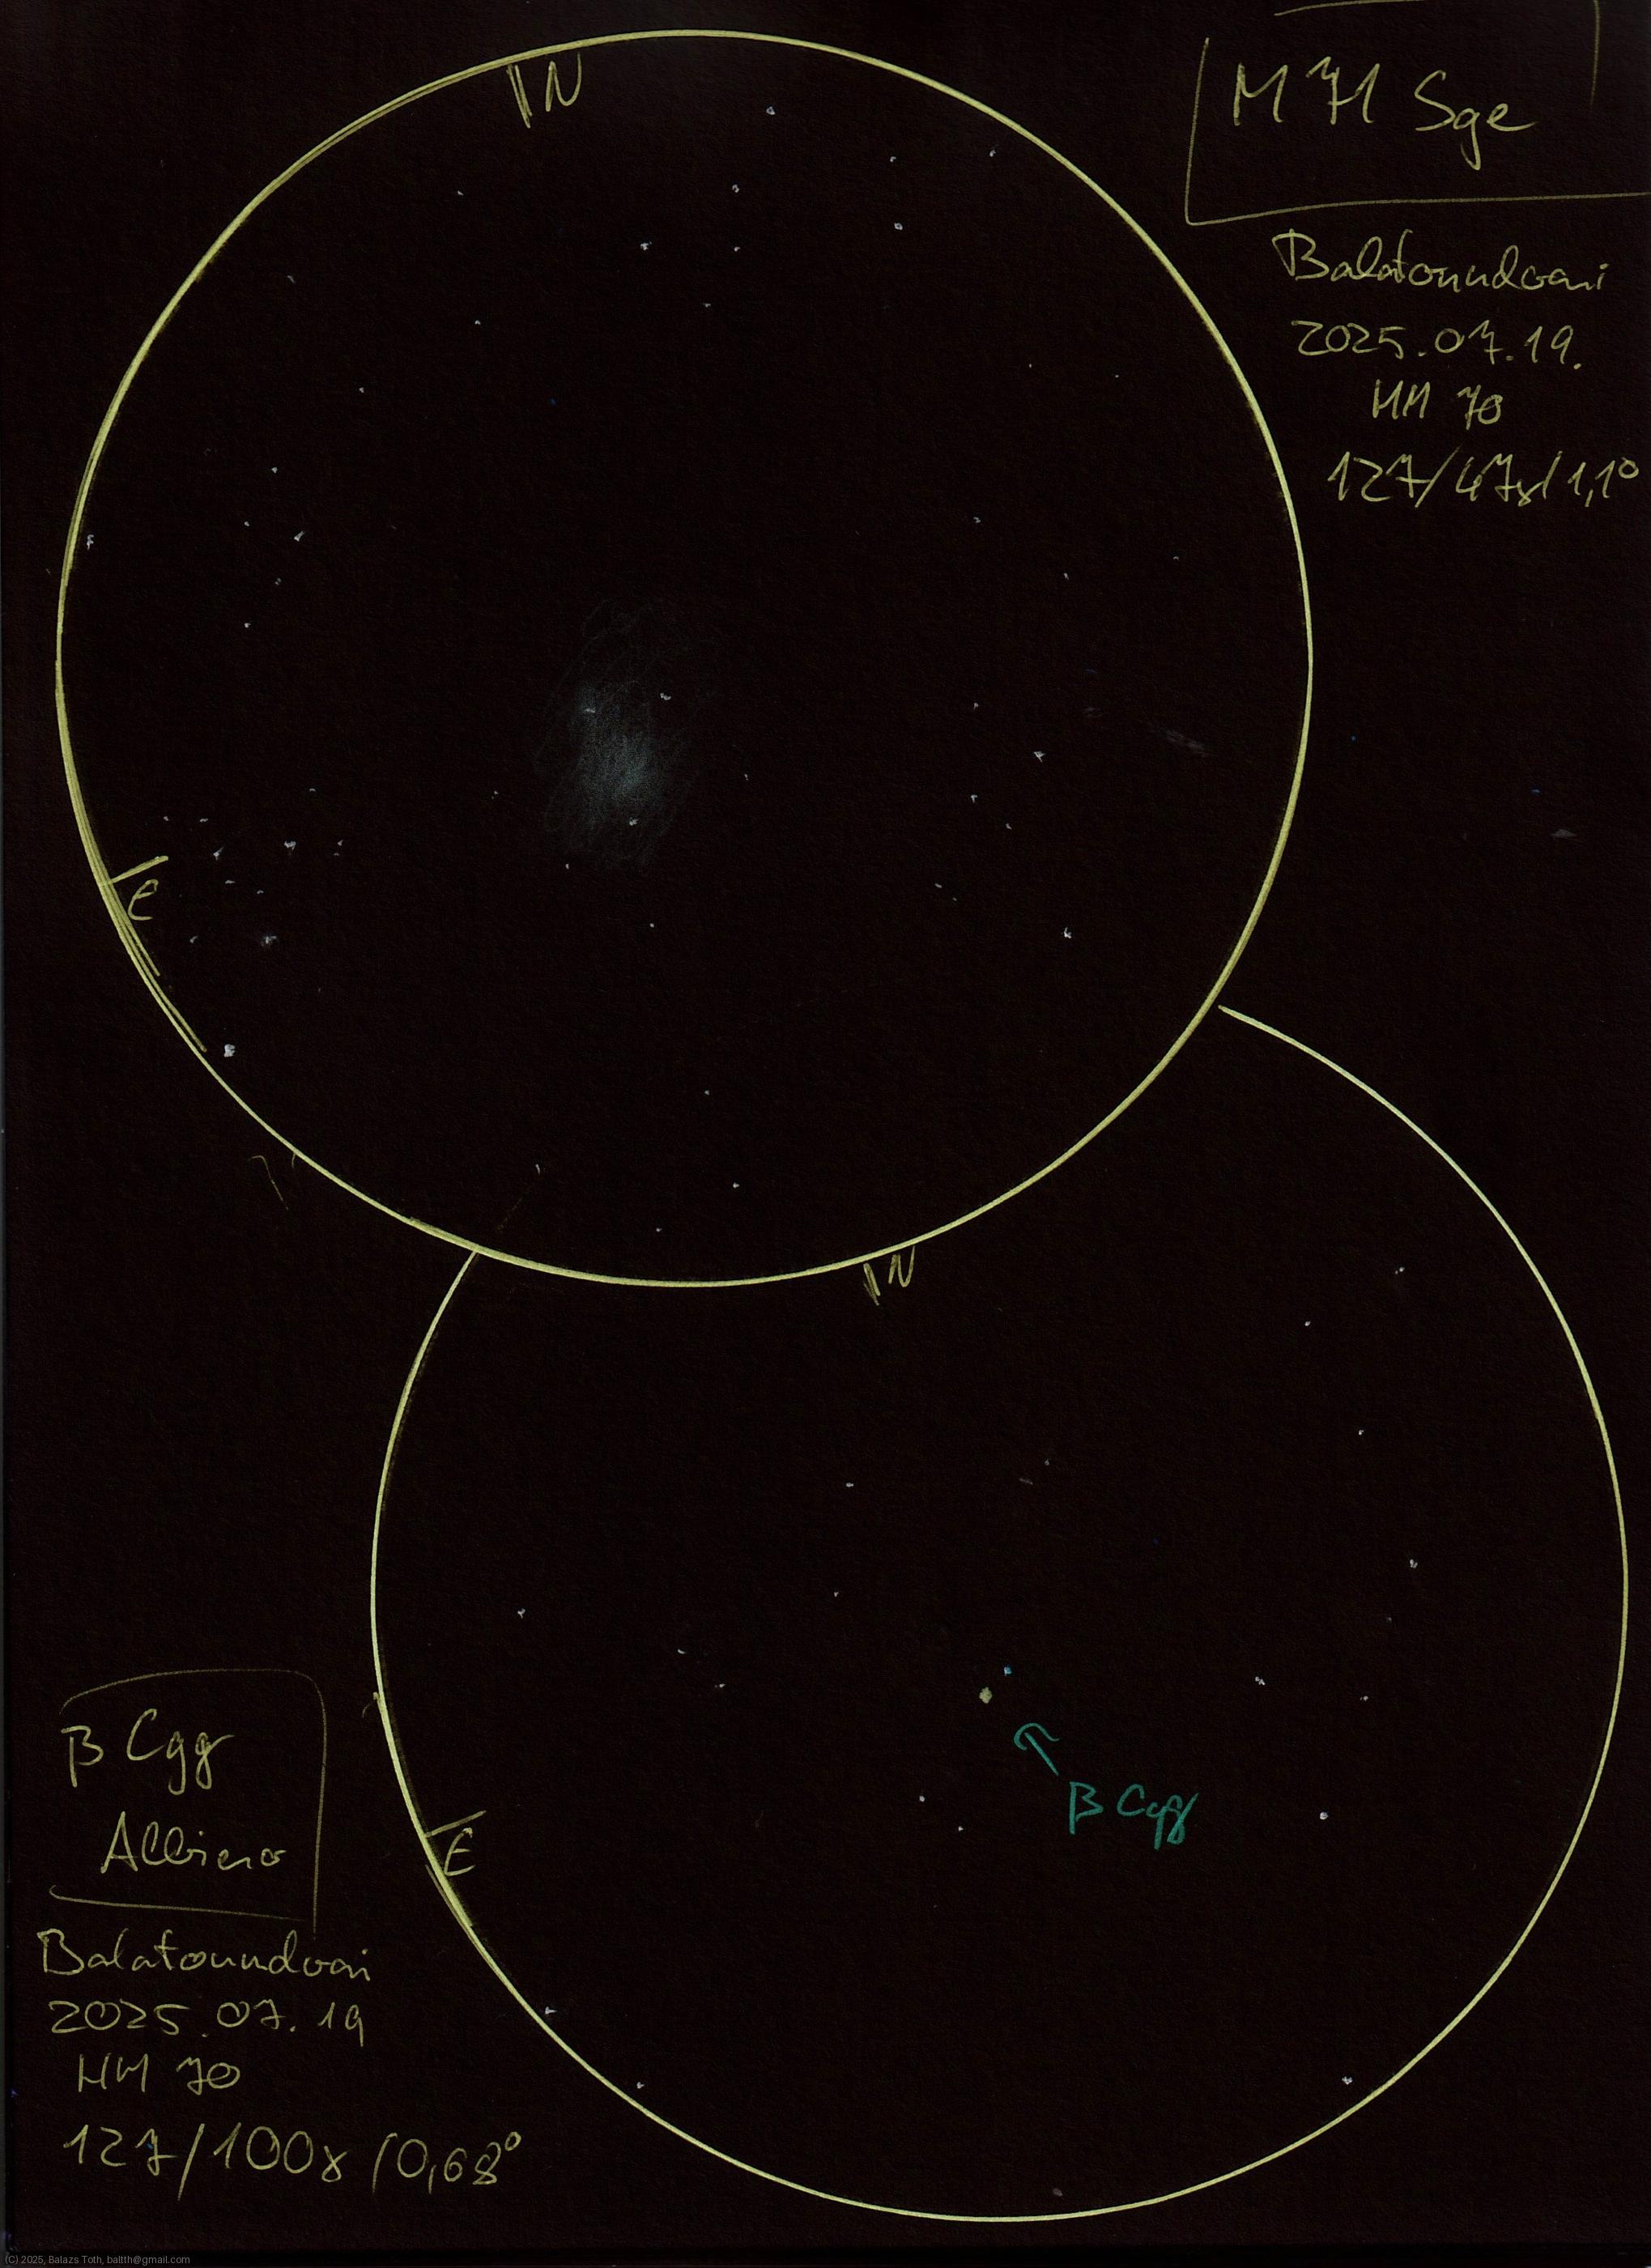 N
M 71 Sge
Balatonudvari
2025.07.19.
HM 70
127/47x/1,1°
E
N
N
β Cyg
β Cyg
Albireo
E
Balatonudvari
2025.07.19
HM 70
127/100x/0,68°
(C) 2025, Balazs Toth, baltth@gmail.com